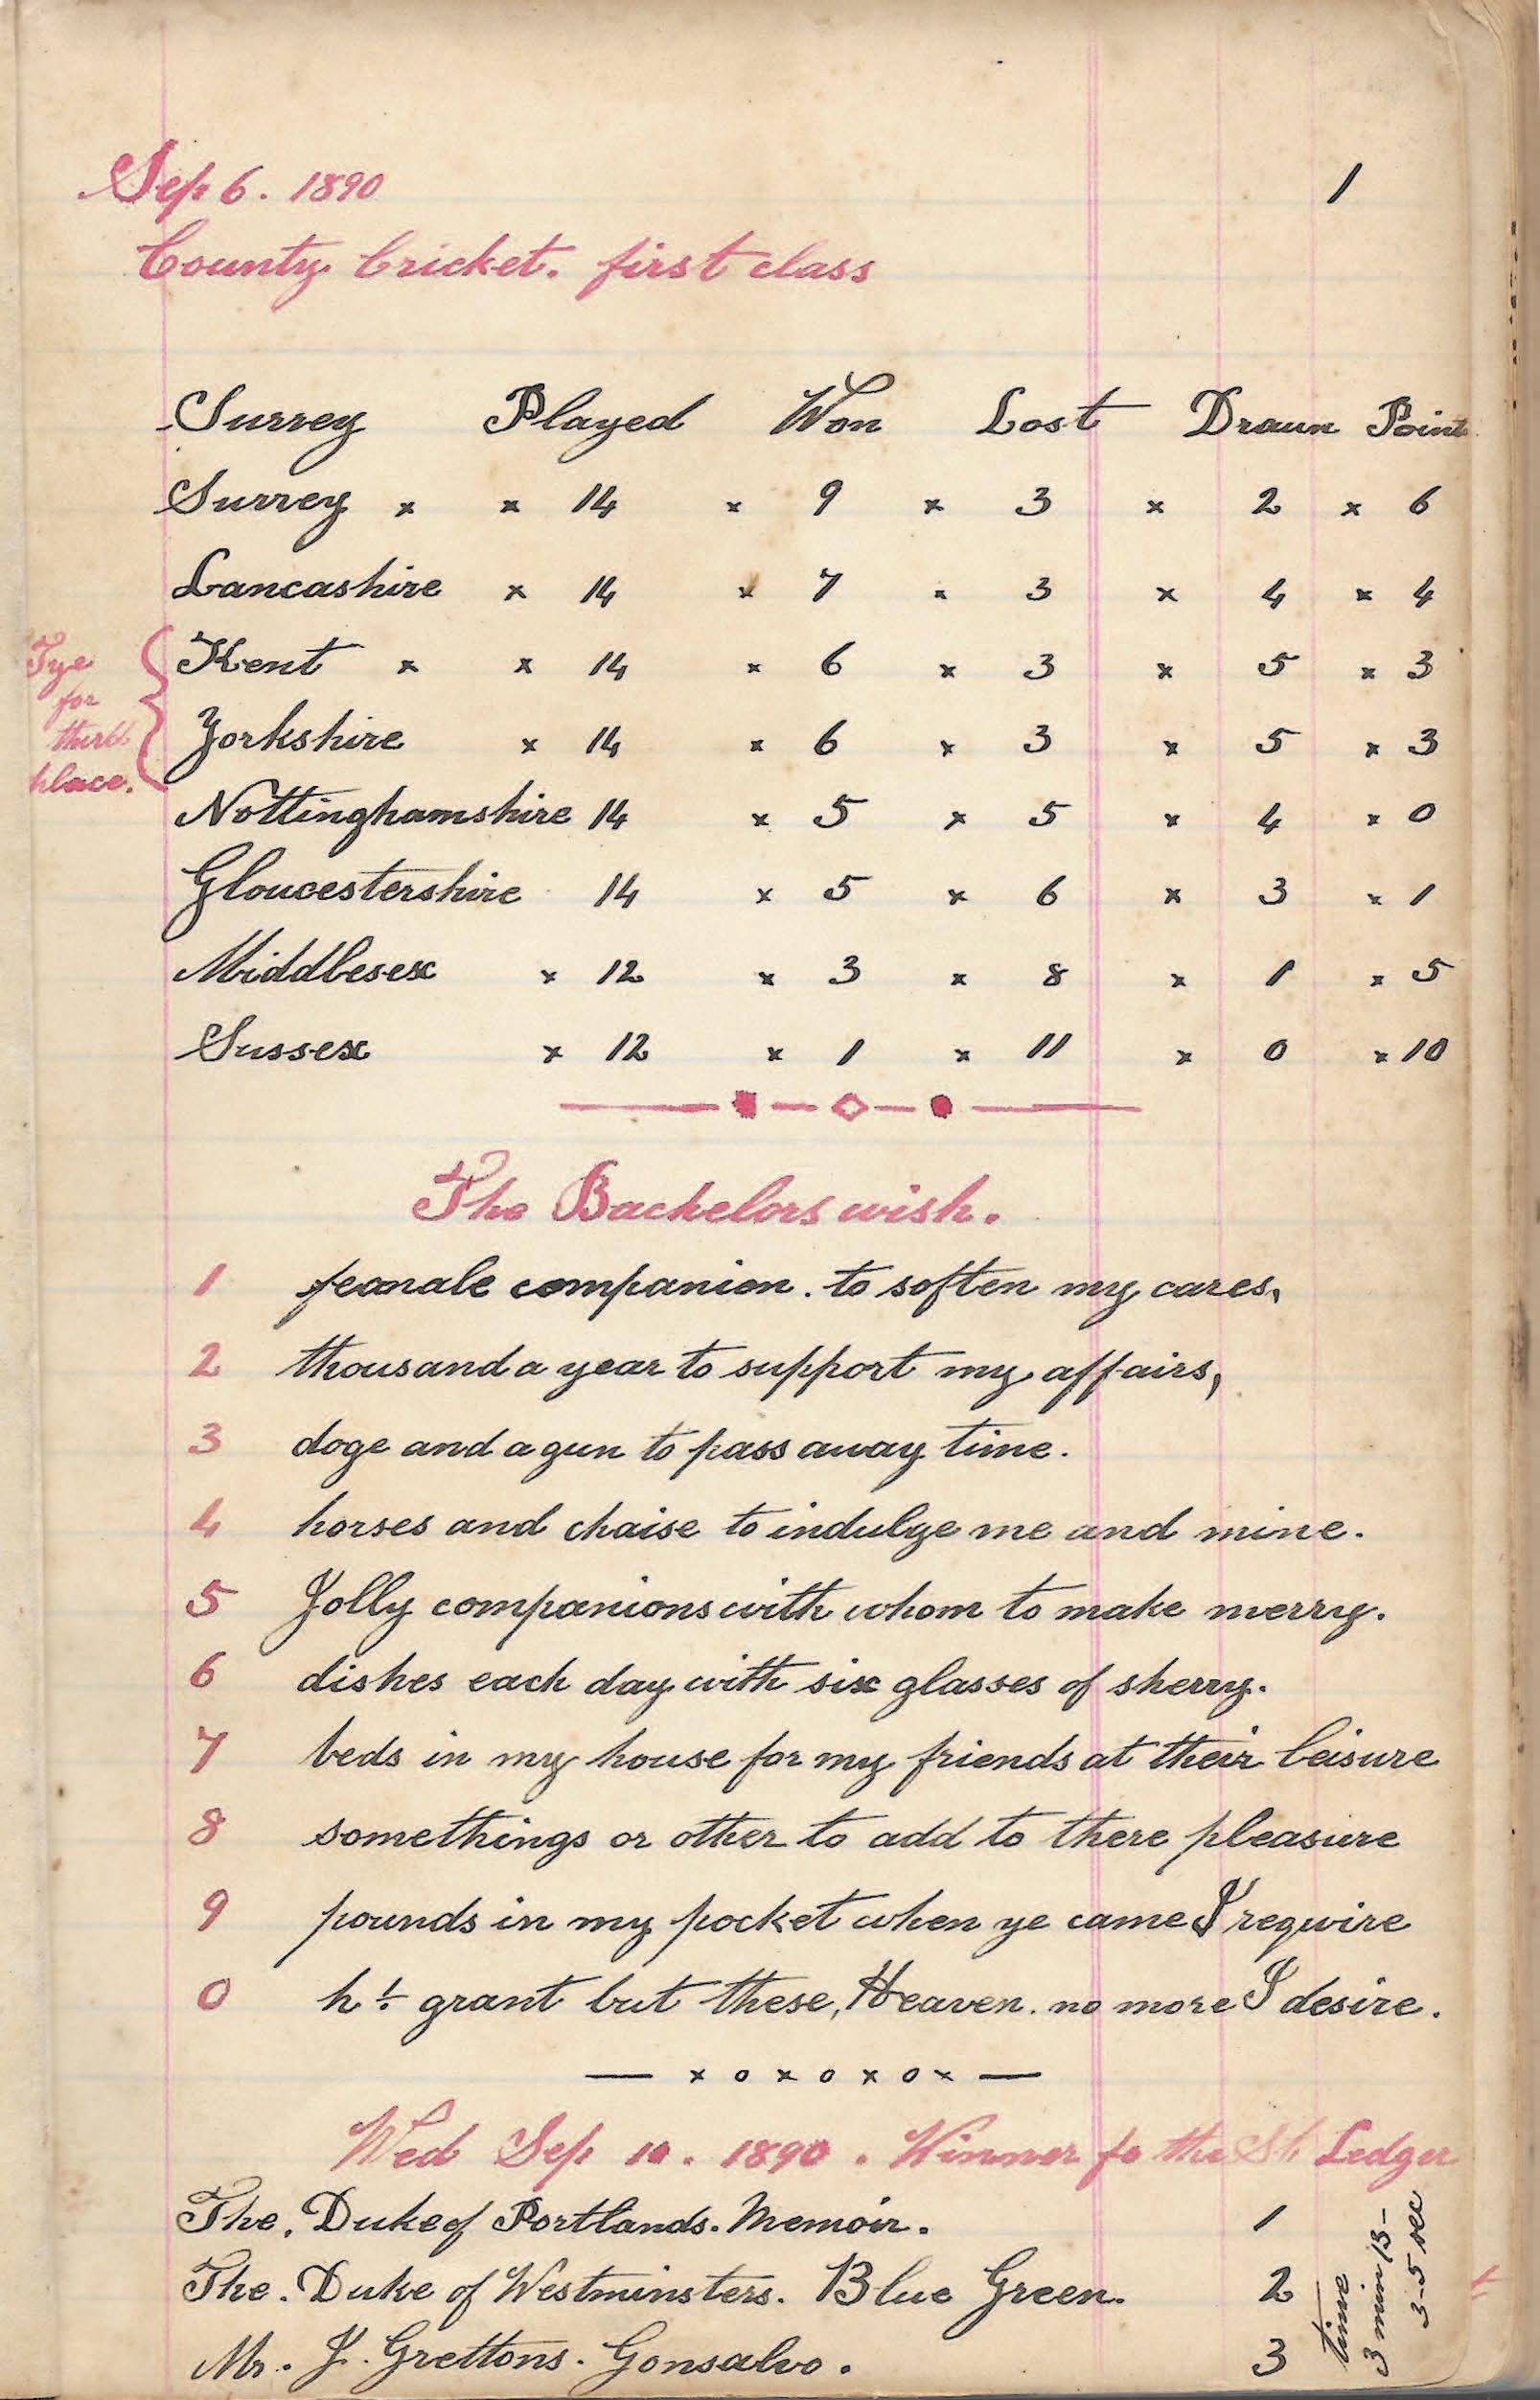 1
Sep 6. 1890
County Cricket. first class
Surrey Played Won Lost Drawn Point
Surrey x x 14 x 9 x 3 x 2 x 6
Lancashire x 14 x 7 x 3 x 4 x 4
Tye for third place.
Kent x x 14 x 6 x 3 x 5 x 3
Yorkshire x 14 x 6 x 3 x 5 x 3
Nottinghamshire 14 x 5 x 5 x 4 x 0
Gloucestershire 14 x 5 x 6 x 3 x 1
Middlesex x 12 x 3 x 8 x 1 x 5
Sussex x 12 x 1 x 11 x 0 x 10
The Bachelors wish.
1 feamale companion. to soften my cares,
2 thousand a year to support my affairs,
3 doge and a gun to pass away time.
4 horses and chaise to indulge me and mine.
5 Jolly companions with whom to make merry.
6 dishes each day with six glasses of sherry.
7 beds in my house for my friends at their leisure
8 somethings or other to add to there pleasure
9 pounds in my pocket when ye came I require
0 ht. grant but these, Heaven. no more I desire.
— x o x o x o x —
Wed Sep 10. 1890. Winner fo the St. Ledger
The. Duke of Portlands. Memoir. 1
The. Duke of Westminsters. Blue Green. 2
Mr. J. Grettons. Gonsalvo. 3
time
3 min 13-
3-5 sec